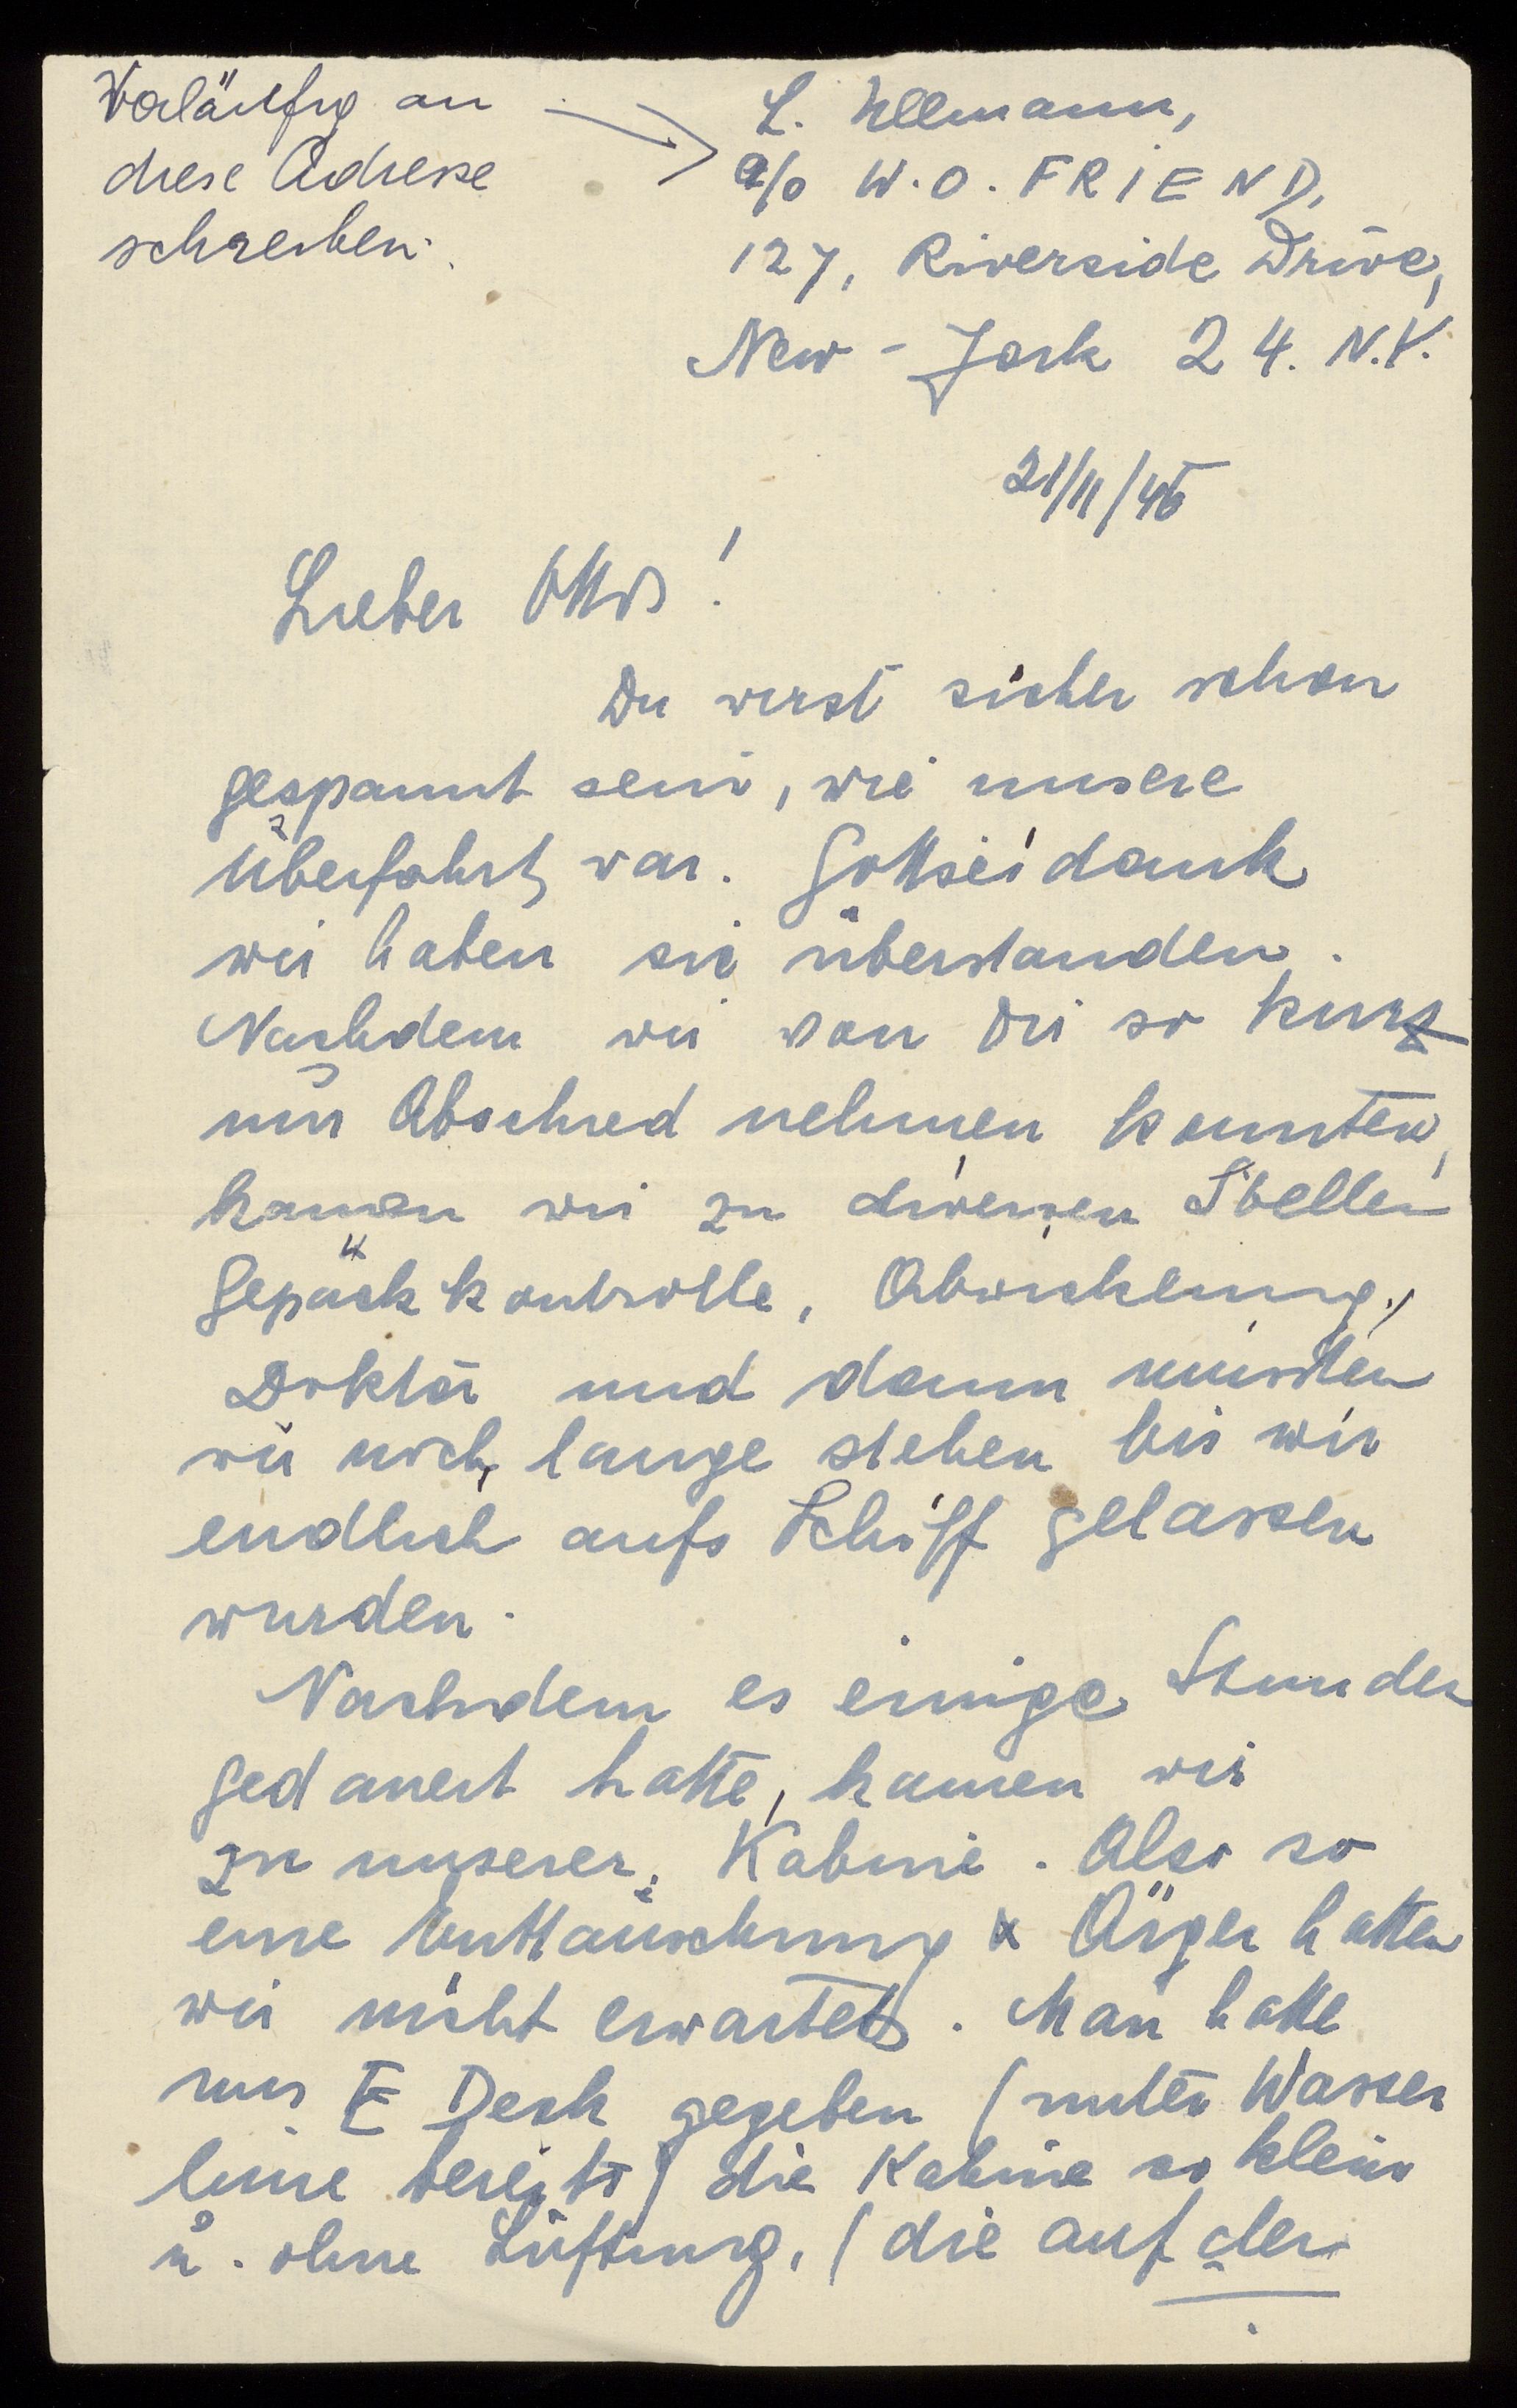 Vorläufig an
diese Adresse
schreiben.
L. Ullmann,
c/o W. O. FRIEND,
127, Riverside Drive,
New-York 24. N.Y.
21/11/46
Lieber Otto!
Du wirst sicher schon
gespannt sein, wie unsere
Überfahrt war. Gottseidank
wir haben sie überstanden.
Nachdem wir von Dir so kurz
nur Abschied nehmen konnten,
kamen wir zu diversen Stellen
Gepäckkontrolle,
Doktor und dann mussten
wir noch lange stehen bis wir
endlich aufs Schiff gelassen
wurden.
Nachdem es einige Stunden
gedauert hatte, kamen wir
zu unserer Kabine. Also so
eine Enttäuschung & Ärger hatten
wir nicht erwartet. Man hatte
uns E Deck gegeben (unter Wasser
linie bereits) die Kabine so klein
u. ohne Lüftung, (die auf der